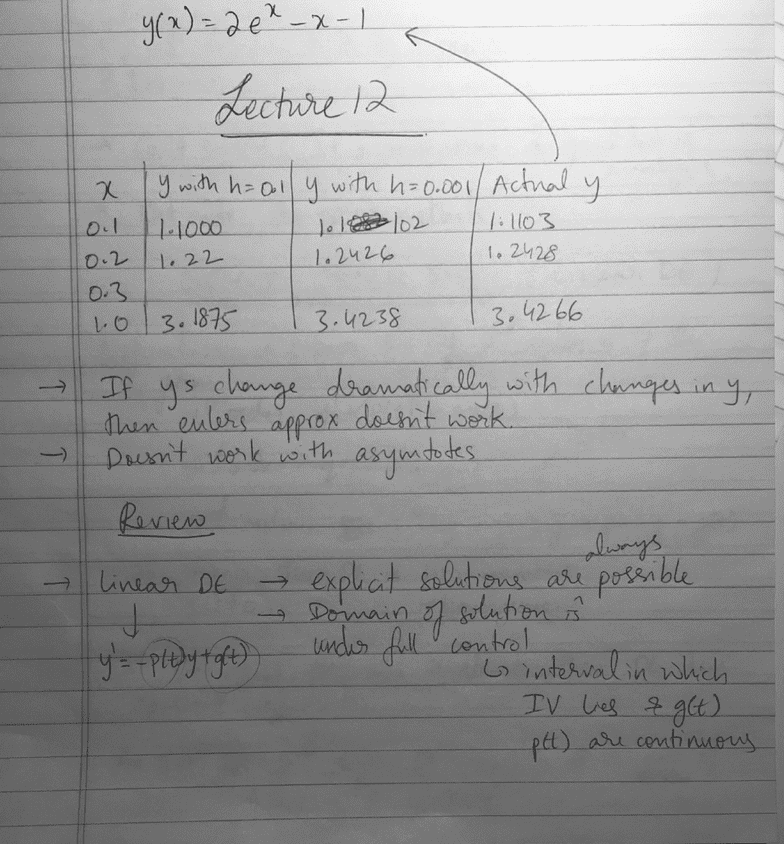 y(x) = 2e^x - x - 1
Lecture 12
x | y with h=0.1 | y with h=0.001 | Actual y
0.1 | 1.1000 | 1.1102 | 1.1103
0.2 | 1.22 | 1.2426 | 1.2428
0.3
1.0 | 3.1875 | 3.4238 | 3.4266
→ If ys change dramatically with changes in y,
then eulers approx doesn't work.
→ Doesn't work with asymtotes
Review
always
→ linear DE → explicit solutions are possible
↓ → Domain of solution is
y' = -p(t)y + g(t) under full control
↳ interval in which
IV lies & g(t)
p(t) are continuous